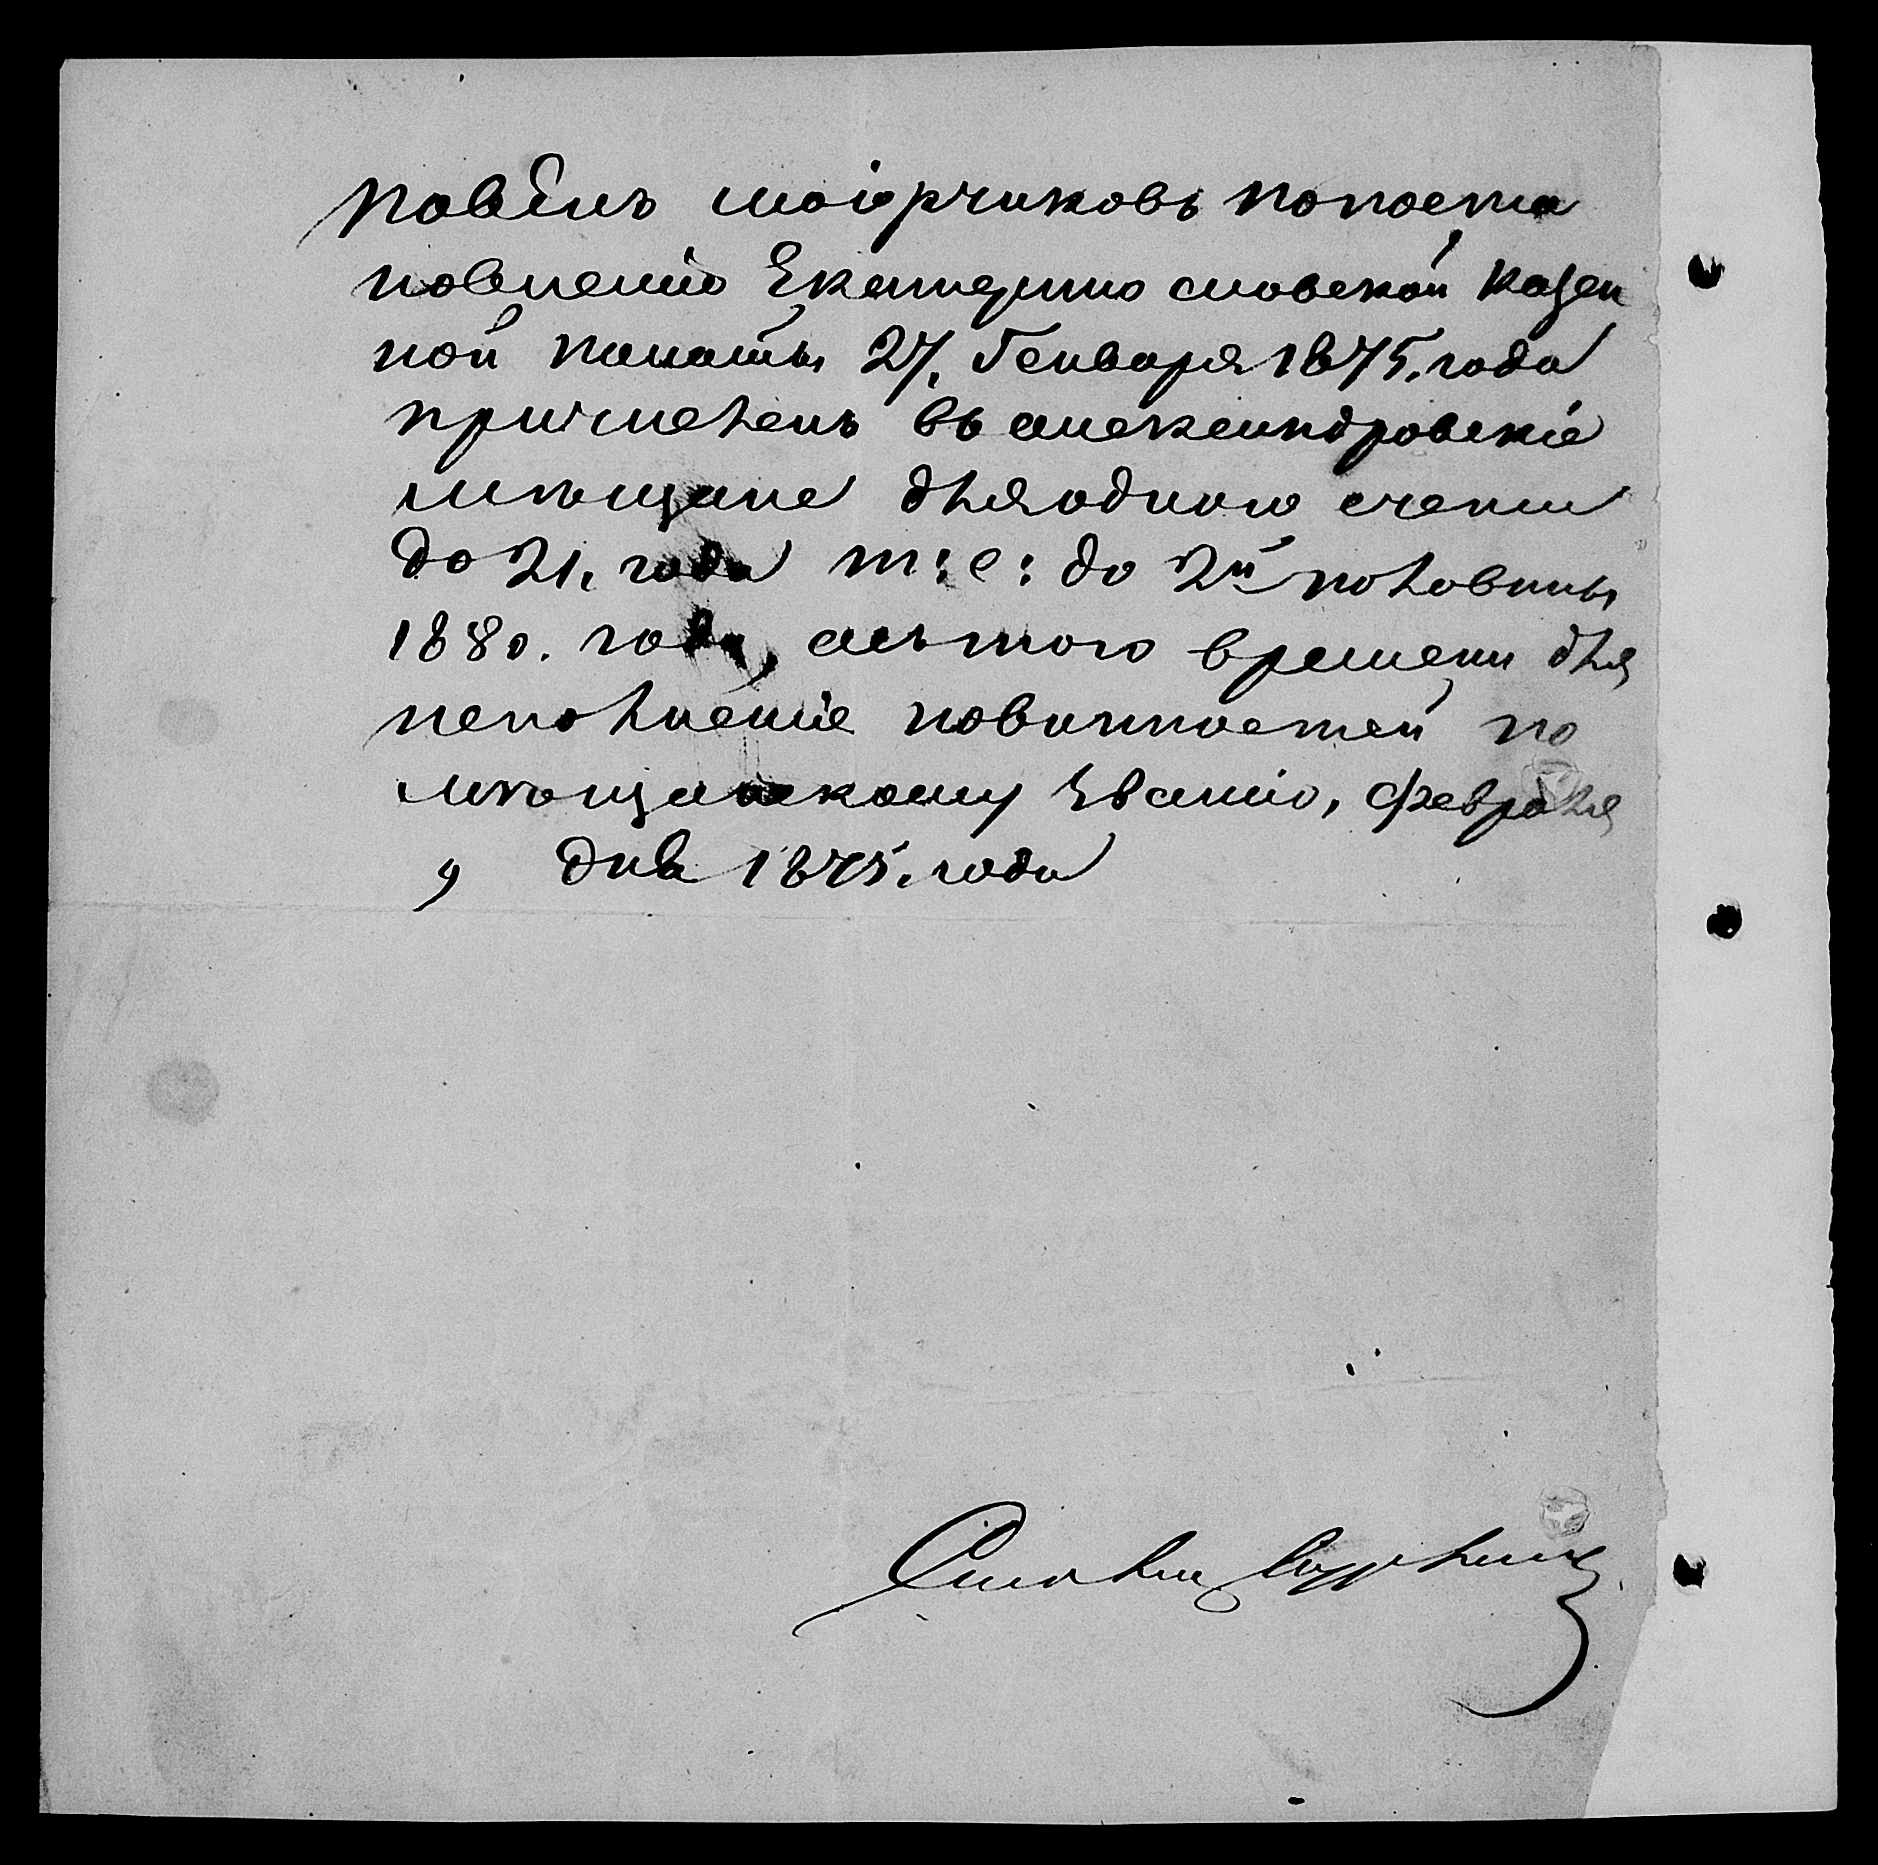 Павелъ маіорчиковъ попоста
новленію Екатерино славской Казен
ной палаты 27. Генваря 1875. года
причисленъ въ александровскіе
мѣщане для одного счета
до 21. года т: е: до 2й половины
1880. года, съ того времени для
исполненіе повинностей по
мѣщанскому званію, Февраля
9 дня 1875. года